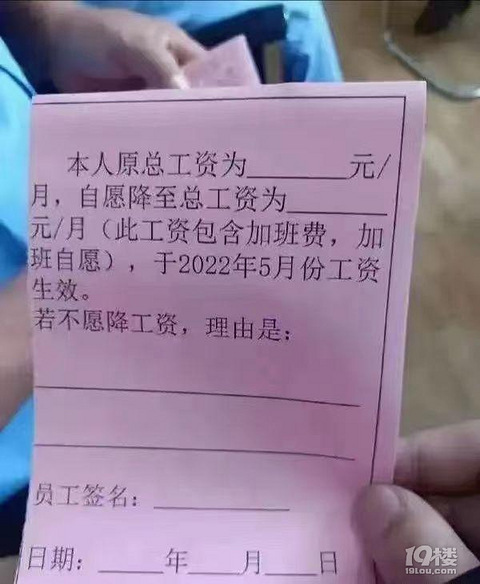 本人原总工资为______元/
月，自愿降至总工资为______
元/月（此工资包含加班费，加
班自愿），于2022年5月份工资
生效。
若不愿降工资，理由是：
员工签名：______
日期：____年____月____日
19楼
19lou.com